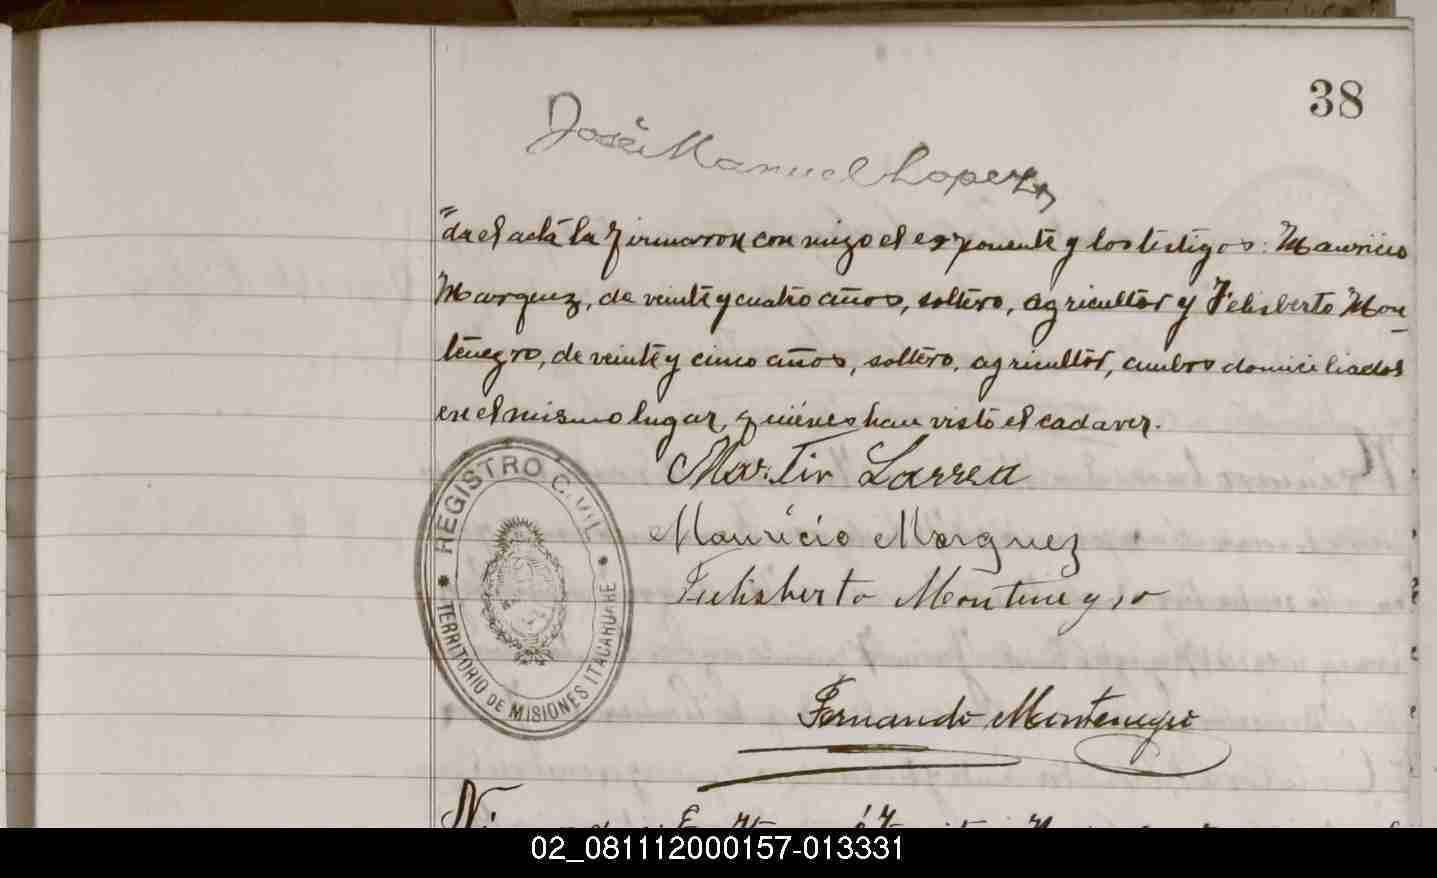 38
José Manuel Lopez
"da el acta la firmaron conmigo el exponente y los testigos: Mauricio
Marquez, de veinte y cuatro años, soltero, agricultor y Felisberto Mon
tenegro, de veinte y cinco años, soltero, agricultor, ambos domiciliados
en el mismo lugar, quiénes han visto el cadaver.
Martin Larrea
REGISTRO CIVIL
TERRITORIO DE MISIONES ITACARUARE
Mauricio Marquez
Felisberto Montenegro
Fernando Montenegro
02_081112000157-013331